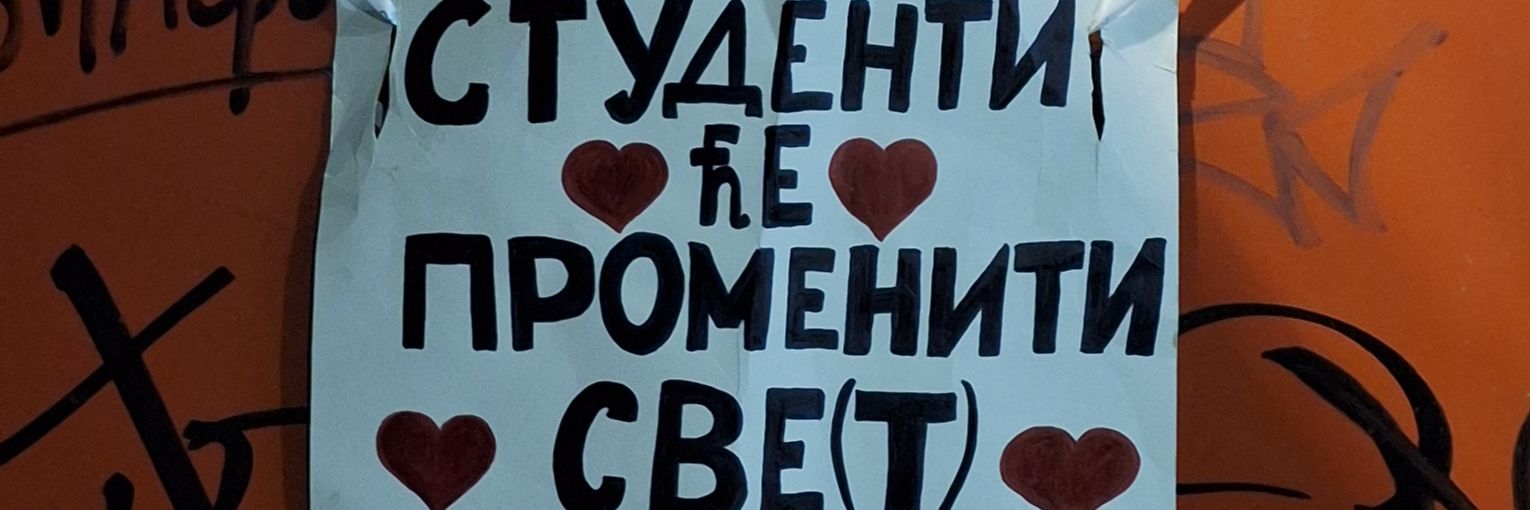 СТУДЕНТИ
ЋЕ
ПРОМЕНИТИ
СВЕ(Т)